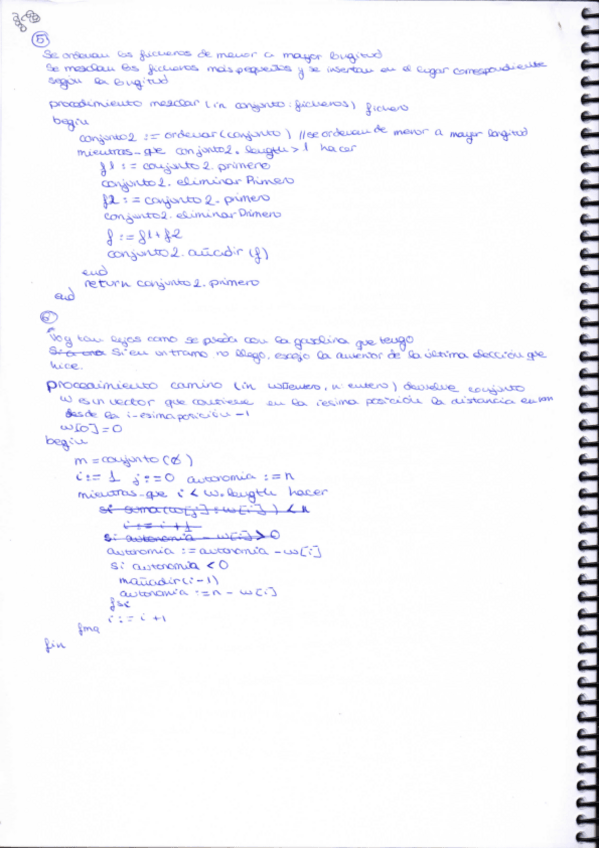 5
Se ordenan los ficheros de menor a mayor longitud
Se mezclan los ficheros más pequeños y se insertan en el lugar correspondiente
según la longitud
procedimiento mezclar (in conjunto: ficheros) fichero
begin
conjunto2 := ordenar (conjunto) // se ordenan de menor a mayor longitud
mientras-que conjunto2.length > 1 hacer
f1 := conjunto2.primero
conjunto2.eliminar Primero
f2 := conjunto2.primero
conjunto2.eliminar Primero
f := f1 + f2
conjunto2.añadir (f)
end
return conjunto2.primero
end
6
Voy tan lejos como se pueda con la gasolina que tengo
Si en un tramo no llego, escojo la anterior de la última elección que
hice.
procedimiento camino (in w: entero, n: entero) devuelve conjunto
w es un vector que contiene en la iesima posición la distancia en km
desde la i-esima posición -1
w[0]=0
begin
m = conjunto (Ø)
i := 1 j := 0 autonomia := n
mientras-que i < w.length hacer
si suma (w[j]: w[i]) < n
i := i + 1
si autonomia - w[i] > 0
autonomia := autonomia - w[i]
si autonomia < 0
mañadir (i-1)
autonomia := n - w[i]
fsi
i := i + 1
fmq
fin